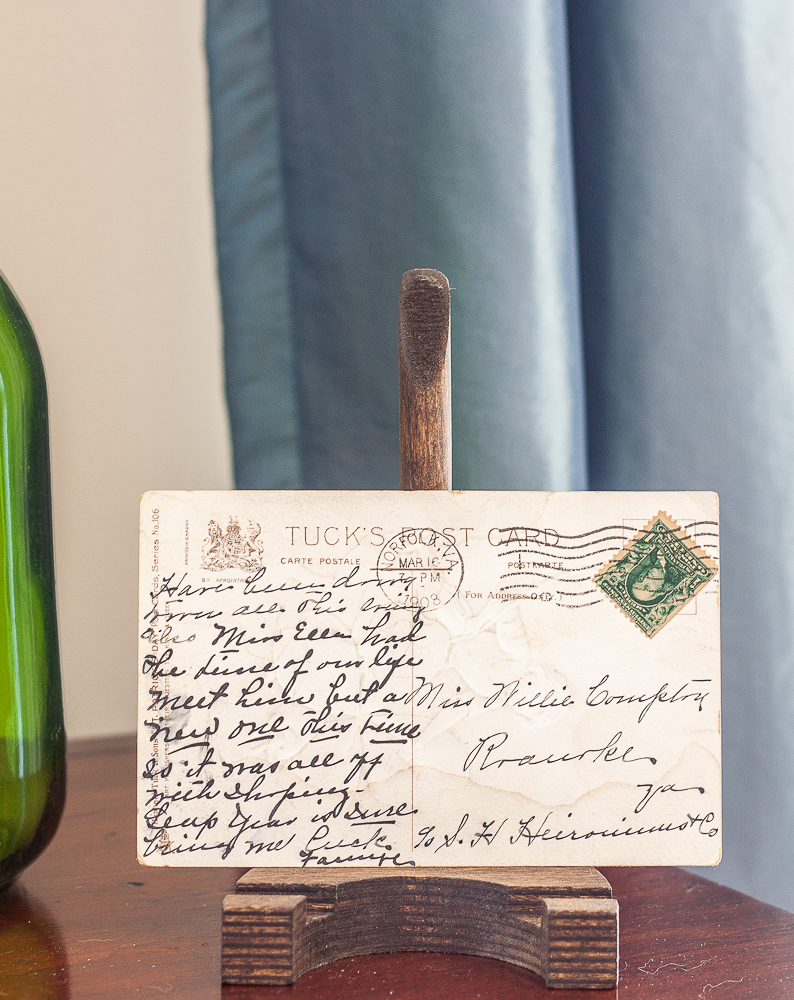 TUCK'S POST CARD
CARTE POSTALE
POSTKARTE
BY APPOINTMENT
(FOR ADDRESS ONLY.)
NORFOLK, VA.
MAR 16
PM
1908
Series No. 106
Have been down
town all this
also Miss Ellen had
the time of our life
meet him but a
new one this time
so it was all off
with shoping-
Leap Year is sure
bring me luck.
Miss Willie Compton
Roanoke
Va
c/o S. H Heironimus & Co